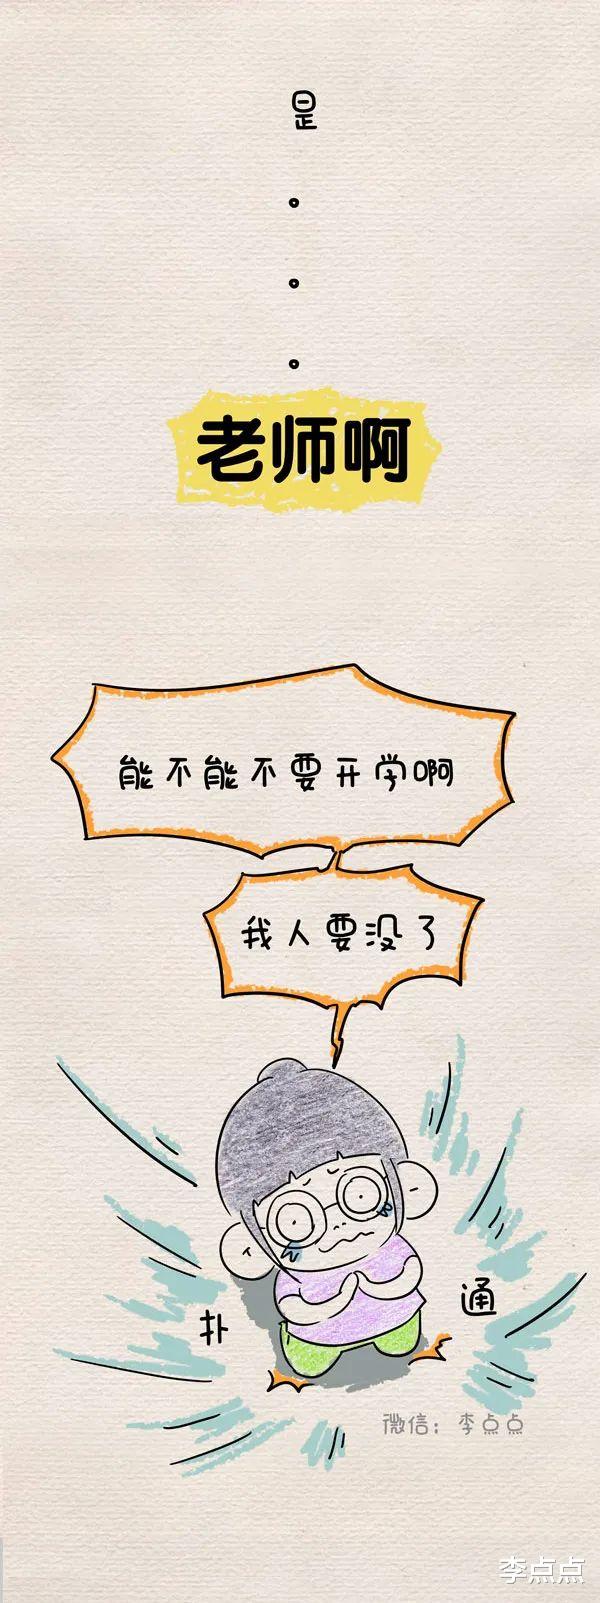 是
。
。
。
老师啊
能不能不要开学啊
我人要没了
扑
通
微信：李点点
李点点